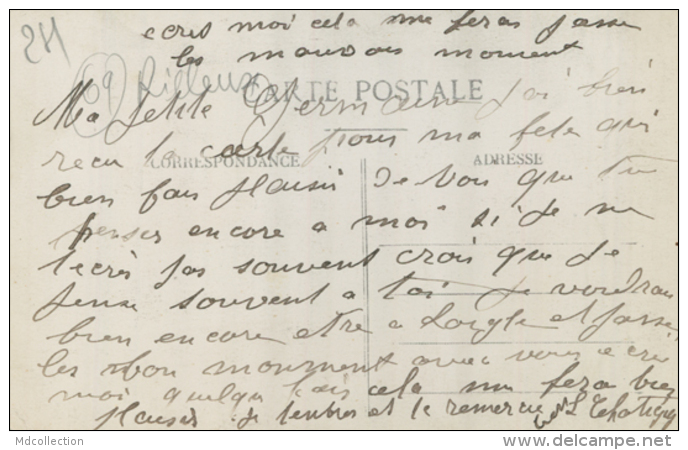 ecris moi cela me feras passe
les mauvais moment
24
(69) Rillieux
CARTE POSTALE
Ma petite Germaine J'ai bien
recu la carte pour ma fete qui
CORRESPONDANCE
ADRESSE
bien fais plaisir de voir que tu
penses encore a moi si je ne
t'ecris pas souvent crois que je
pense souvent a toi Je voudrais
bien encore etre a et passe
les bon moument avec vous ecris
moi quelque fois cela me fera bien
plaisir je t'embrase et te remercie
Mdcollection
www.delcampe.net